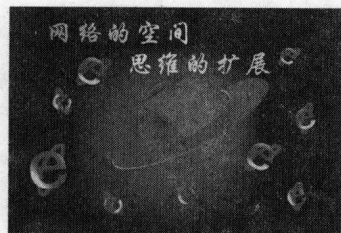 网络的空间
思维的扩展